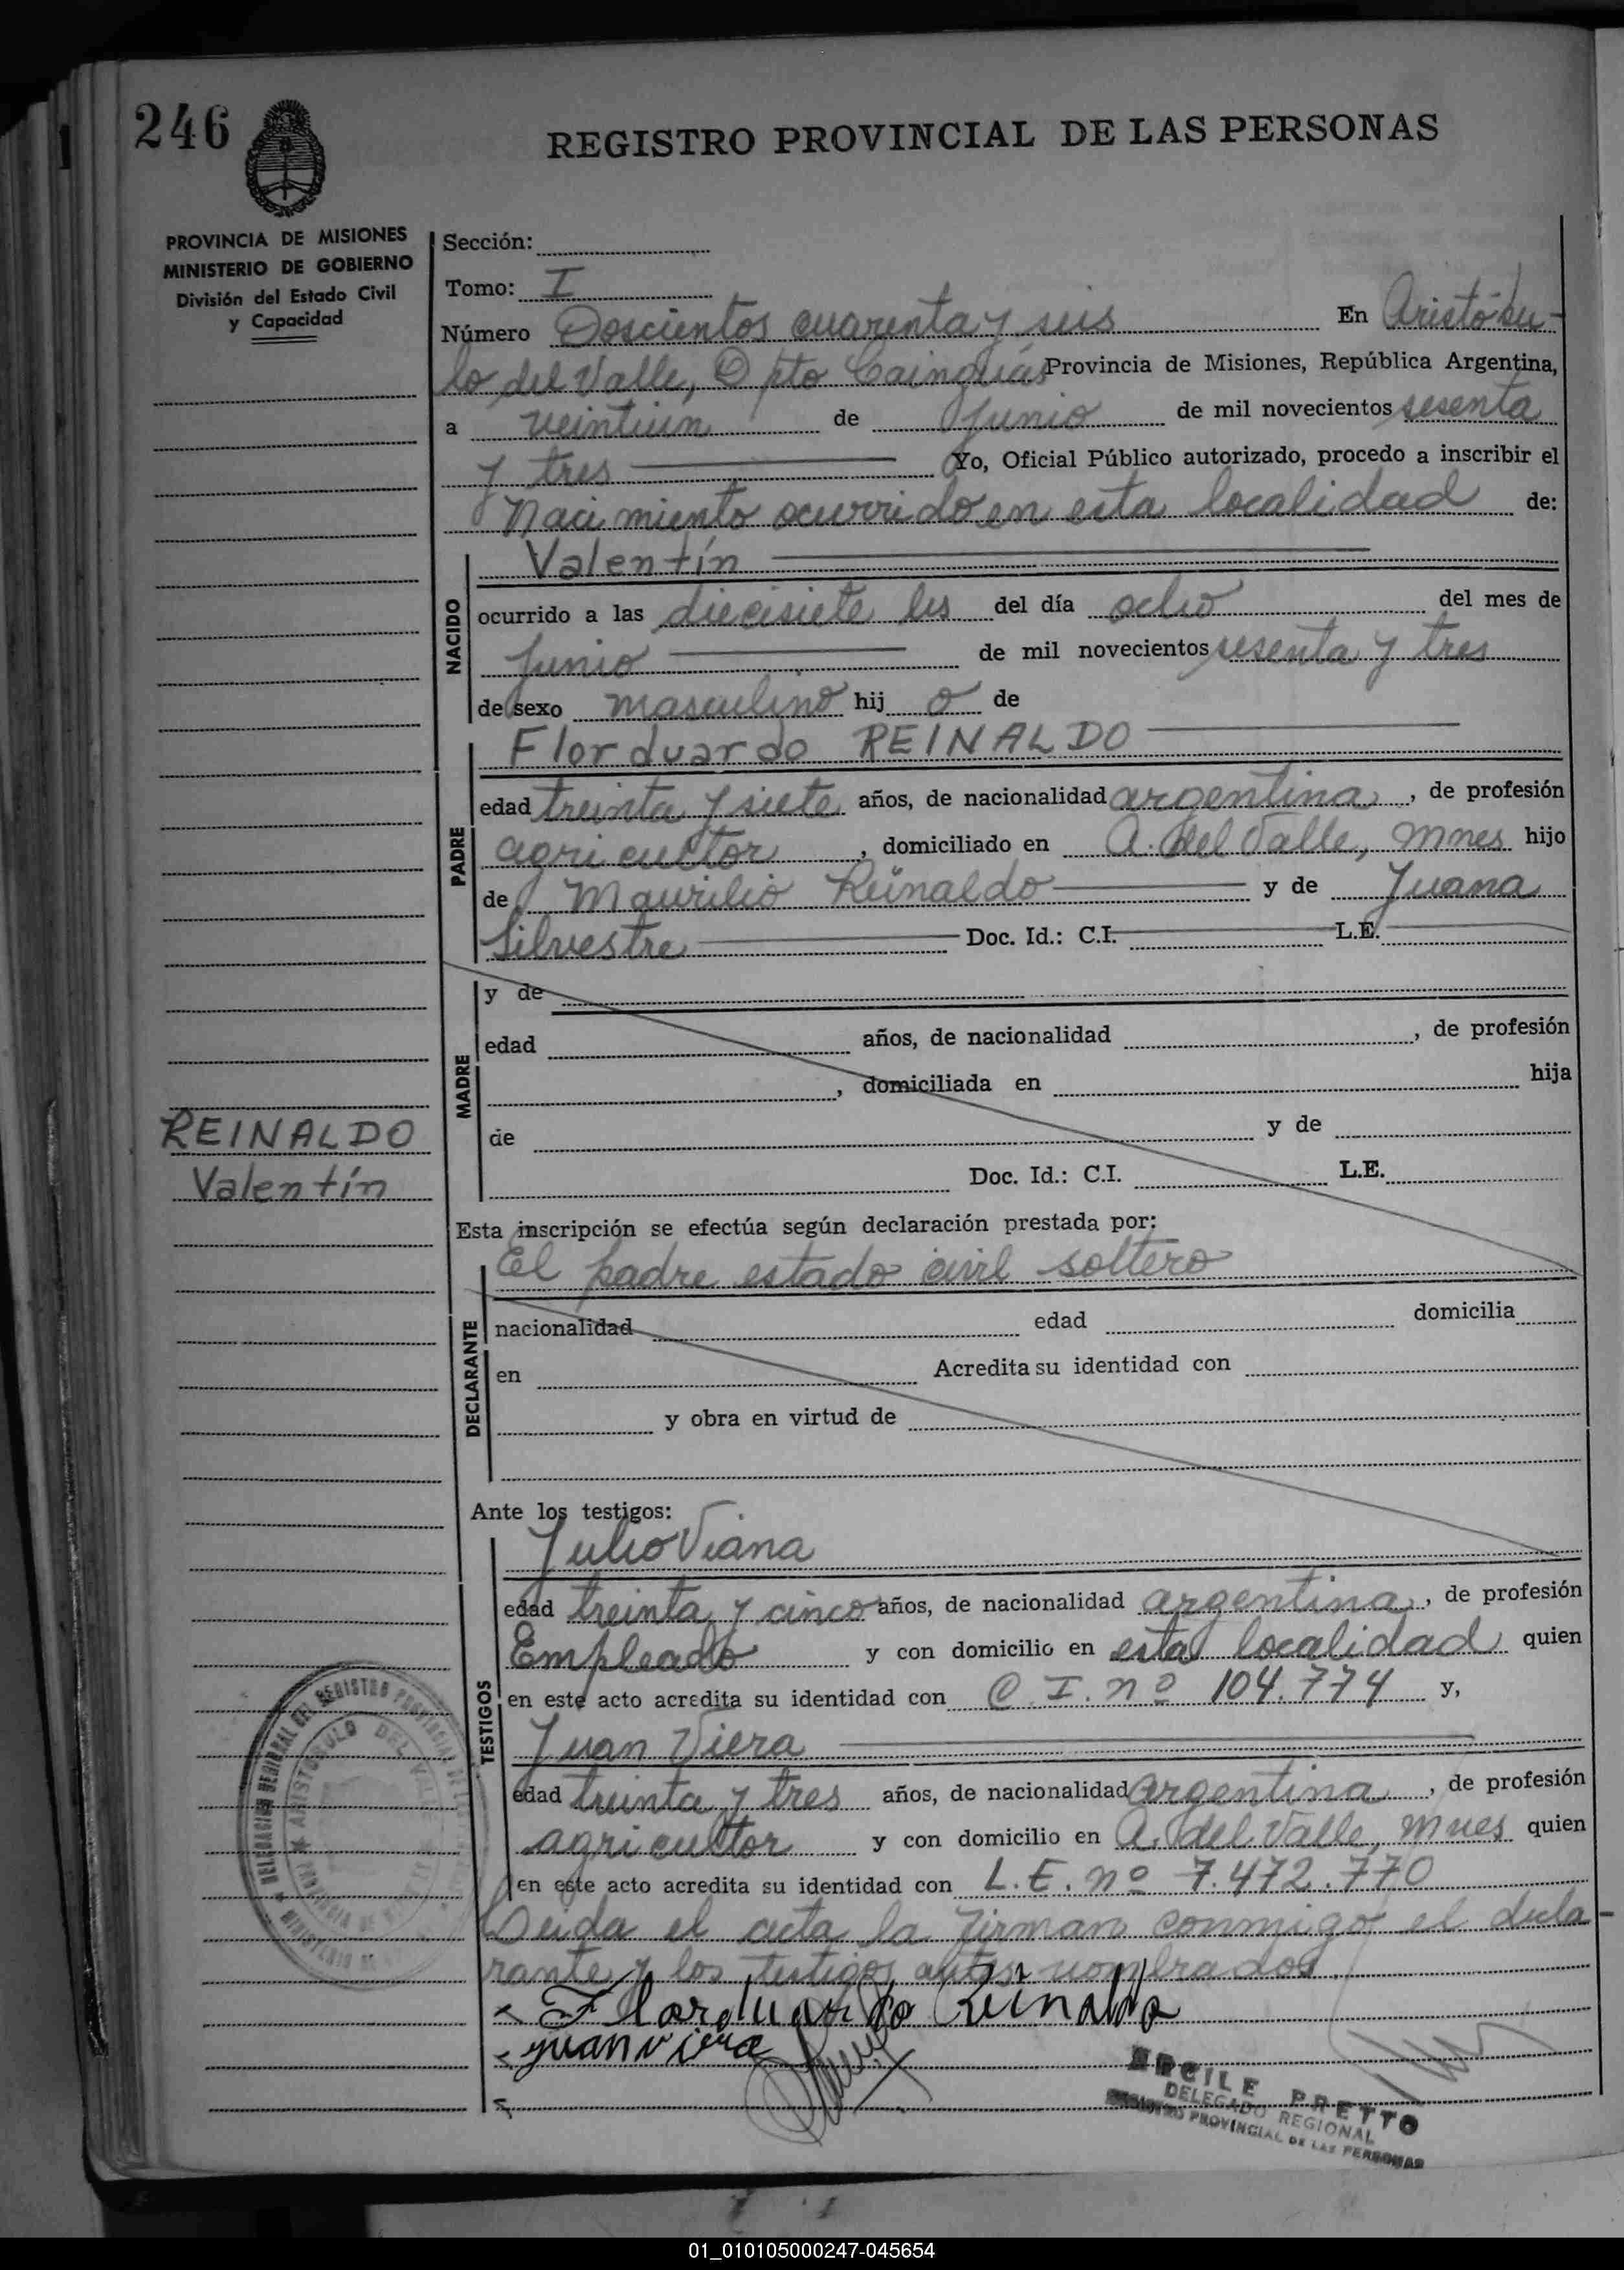 246
REGISTRO PROVINCIAL DE LAS PERSONAS
PROVINCIA DE MISIONES
MINISTERIO DE GOBIERNO
División del Estado Civil
y Capacidad
Sección:
Tomo: I
Número Doscientos cuarenta y seis En Aristóbu-
lo del Valle, Dpto Cainguás Provincia de Misiones, República Argentina,
a veintiun de Junio de mil novecientos sesenta
y tres Yo, Oficial Público autorizado, procedo a inscribir el
Nacimiento ocurrido en esta localidad de:
NACIDO
Valentín
ocurrido a las diecisiete hs del día ocho del mes de
Junio de mil novecientos sesenta y tres
de sexo masculino hij o de
PADRE
Florduardo REINALDO
edad treinta y siete años, de nacionalidad argentina, de profesión
agricultor, domiciliado en A. del Valle, Mnes hijo
de Maurilio Reinaldo y de Juana
Silvestre Doc. Id.: C.I. L.E.
MADRE
y de
edad años, de nacionalidad , de profesión
, domiciliada en hija
de y de
Doc. Id.: C.I. L.E.
REINALDO
Valentín
Esta inscripción se efectúa según declaración prestada por:
El padre estado civil soltero
DECLARANTE
nacionalidad edad domicilia
en Acredita su identidad con
y obra en virtud de
Ante los testigos:
TESTIGOS
Julio Viana
edad treinta y cinco años, de nacionalidad argentina, de profesión
Empleado y con domicilio en esta localidad quien
en este acto acredita su identidad con C.I. nº 104.774 y,
Juan Viera
edad treinta y tres años, de nacionalidad argentina, de profesión
agricultor y con domicilio en A. del Valle, Mnes quien
en este acto acredita su identidad con L.E. nº 7.472.770
Leida el acta la firman conmigo el decla-
rante y los testigos antes nombrados.
Florduardo Reinaldo
juan viera
DELEGACION REGIONAL DEL REGISTRO PROVINCIAL DE LAS
ARISTOBULO DEL VALLE
PROVINCIA DE
MINISTERIO DE
ERCILE PRETTO
DELEGADO REGIONAL
REGISTRO PROVINCIAL DE LAS PERSONAS
01_010105000247-045654